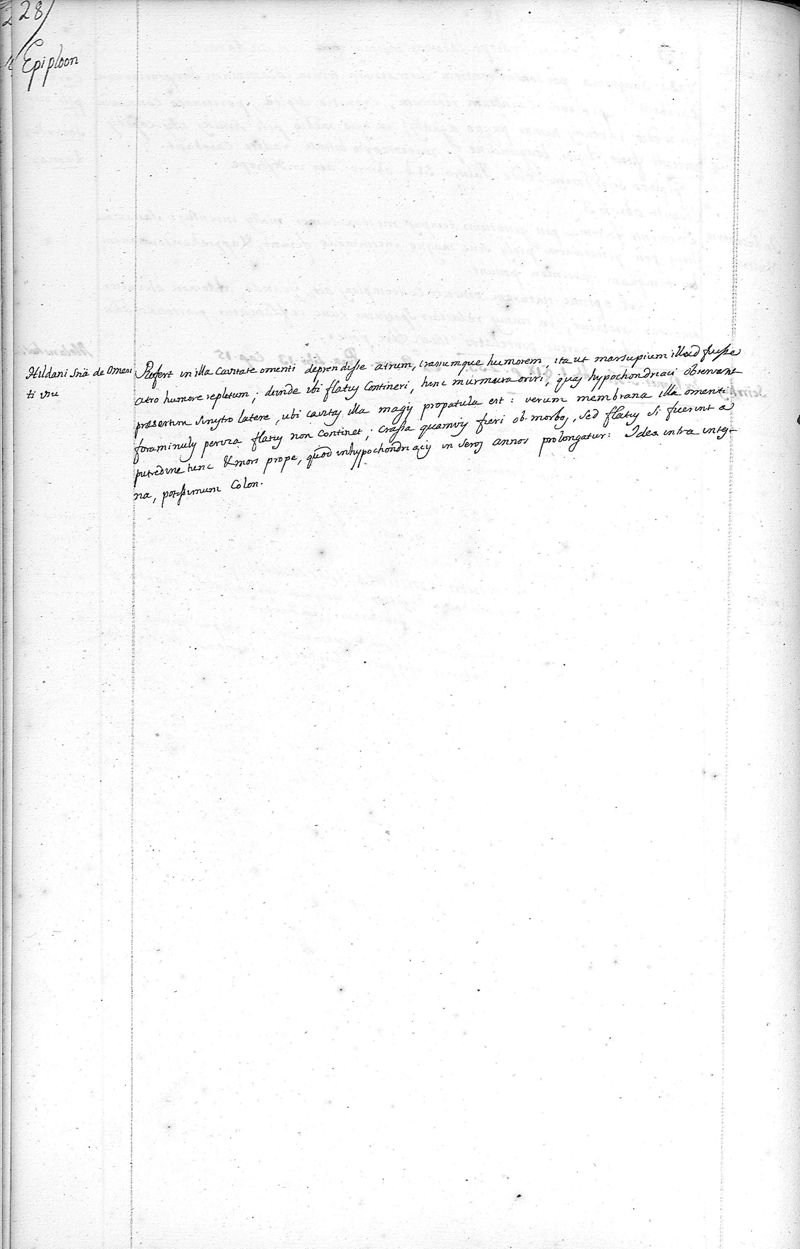 228
Epiploon
Hildani Sña de Omen
ti usu
Refert in illa Cavitate omenti deprendisse atrum, crassumque humorem, ita ut marsupium illud fuisse
atro humore repletum; deinde ubi flatus Contineri, hinc murmura oriri, quas hypochondriaci observant
praesertim sinistro latere, ubi cavitas illa magis propatula est: verum membrana illa omenti
foraminulis pervia flatus non Continet; Crassa quamvis fieri ob morbos, sed flatus si fuerint a
putredine tunc & mors prope, quod in hypochondriacis in seros annos prolongatur: Idea intra intesti-
na, potissimum Colon.